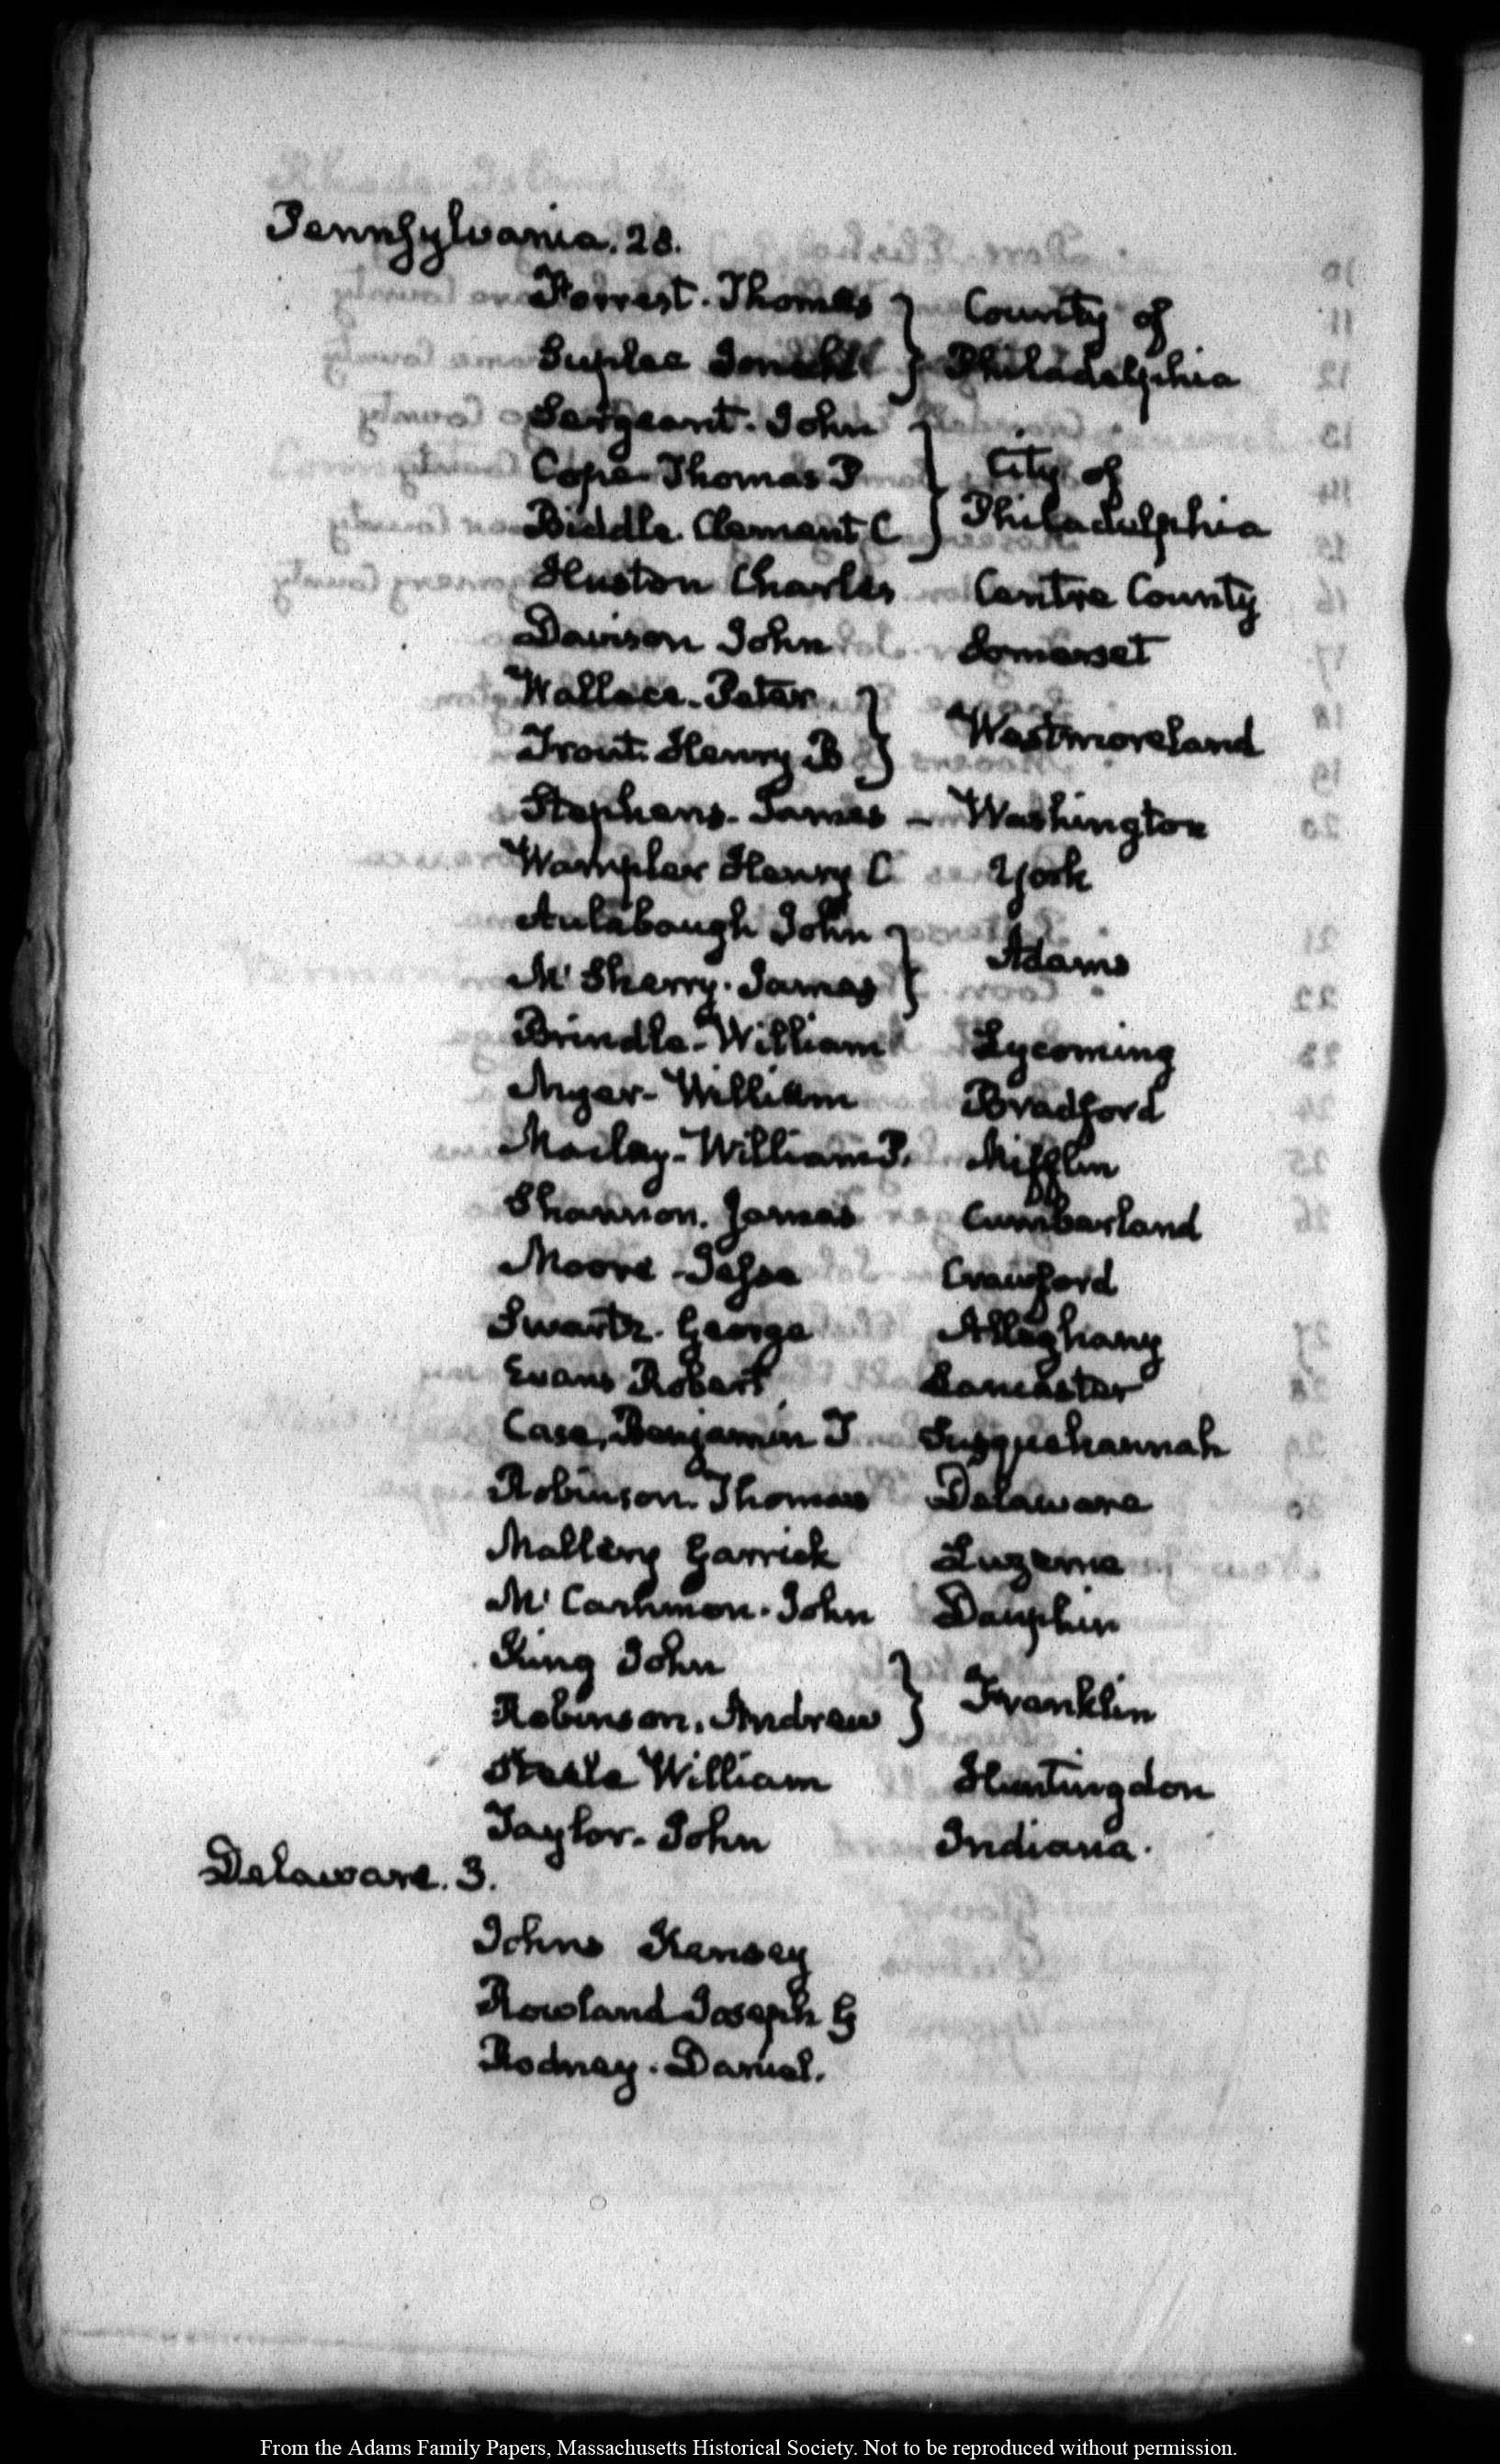 Pennsylvania. 28.
Forrest. Thomas } County of
Suplee } Philadelphia
Sergeant. John
Cope. Thomas P } City of
Biddle. Clement C } Philadelphia
Huston Charles Centre County
Davison John Somerset
Wallace. Peter }
Trout. Henry B } Westmoreland
Stephens. James - Washington
Wampler Henry C York
Aulabaugh John } Adams
Mc Sherry. James }
Brindle. William Lycoming
Myer- William Bradford
Maclay- William P. Mifflin
Shannon. James Cumberland
Moore - Jesse Crawford
Swartz. George Alleghany
Evans Robert Lancaster
Case, Benjamin T Susquehannah
Robinson. Thomas Delaware
Mallery Garrick Luzerne
Mc Cammon. John Dauphin
King John } Franklin
Robinson. Andrew }
Steele William Huntingdon
Taylor. John Indiana.
Delaware. 3.
Johns Kensey
Rowland Joseph G
Rodney. Daniel.
From the Adams Family Papers, Massachusetts Historical Society. Not to be reproduced without permission.